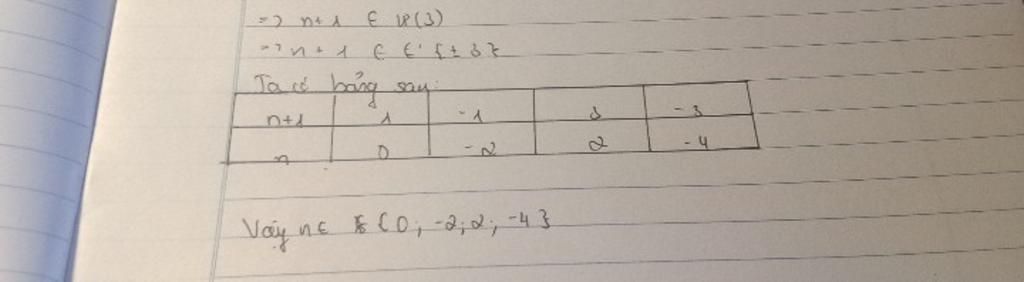 => n+1 ∈ Ư(3)
=> n+1 ∈ {± 3}
Ta có bảng sau:
n+1 1 -1 3 -3
n 0 -2 2 -4
Vậy n ∈ {0; -2; 2; -4}